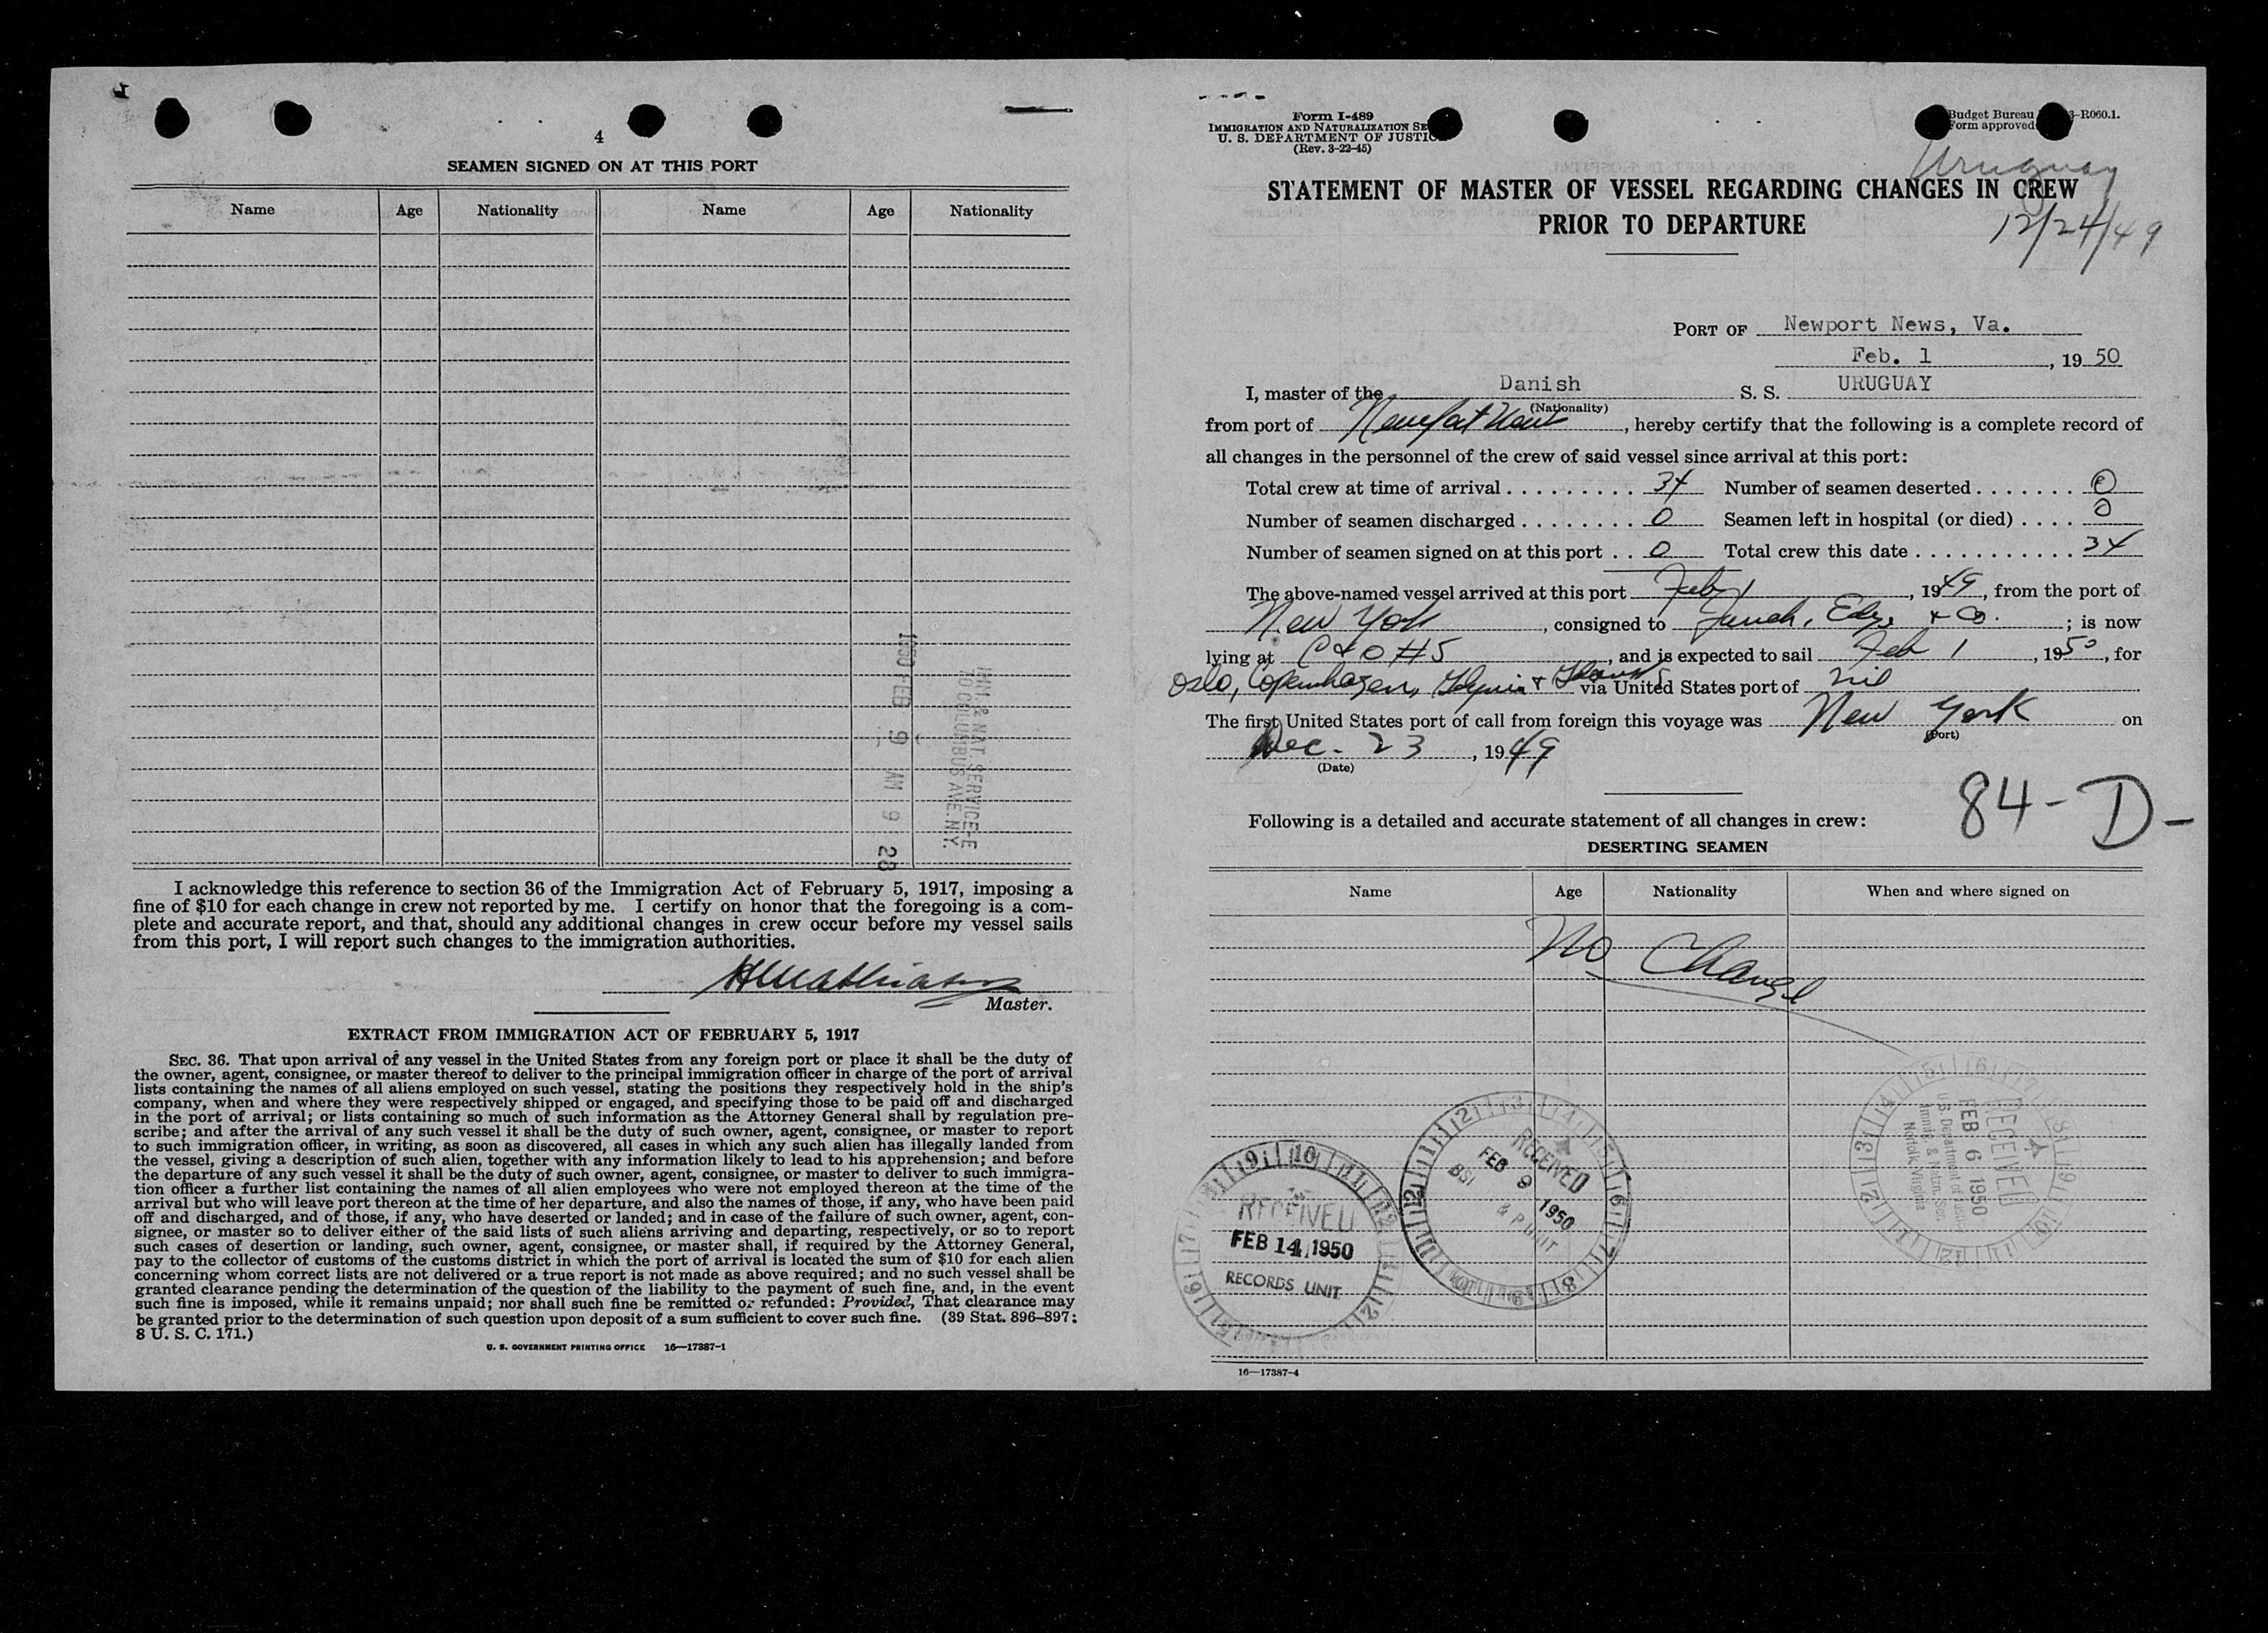 4
SEAMEN SIGNED ON AT THIS PORT
Name Age Nationality Name Age Nationality
1950 FEB 9 AM 9 28
IMM. & NAT. SERVICE-E
70 COLUMBUS AVE. N.Y.
I acknowledge this reference to section 36 of the Immigration Act of February 5, 1917, imposing a
fine of $10 for each change in crew not reported by me. I certify on honor that the foregoing is a com-
plete and accurate report, and that, should any additional changes in crew occur before my vessel sails
from this port, I will report such changes to the immigration authorities.
Master.
EXTRACT FROM IMMIGRATION ACT OF FEBRUARY 5, 1917
SEC. 36. That upon arrival of any vessel in the United States from any foreign port or place it shall be the duty of
the owner, agent, consignee, or master thereof to deliver to the principal immigration officer in charge of the port of arrival
lists containing the names of all aliens employed on such vessel, stating the positions they respectively hold in the ship's
company, when and where they were respectively shipped or engaged, and specifying those to be paid off and discharged
in the port of arrival; or lists containing so much of such information as the Attorney General shall by regulation pre-
scribe; and after the arrival of any such vessel it shall be the duty of such owner, agent, consignee, or master to report
to such immigration officer, in writing, as soon as discovered, all cases in which any such alien has illegally landed from
the vessel, giving a description of such alien, together with any information likely to lead to his apprehension; and before
the departure of any such vessel it shall be the duty of such owner, agent, consignee, or master to deliver to such immigra-
tion officer a further list containing the names of all alien employees who were not employed thereon at the time of the
arrival but who will leave port thereon at the time of her departure, and also the names of those, if any, who have been paid
off and discharged, and of those, if any, who have deserted or landed; and in case of the failure of such owner, agent, con-
signee, or master so to deliver either of the said lists of such aliens arriving and departing, respectively, or so to report
such cases of desertion or landing, such owner, agent, consignee, or master shall, if required by the Attorney General,
pay to the collector of customs of the customs district in which the port of arrival is located the sum of $10 for each alien
concerning whom correct lists are not delivered or a true report is not made as above required; and no such vessel shall be
granted clearance pending the determination of the question of the liability to the payment of such fine, and, in the event
such fine is imposed, while it remains unpaid; nor shall such fine be remitted or refunded: Provided, That clearance may
be granted prior to the determination of such question upon deposit of a sum sufficient to cover such fine. (39 Stat. 896–897;
8 U. S. C. 171.)
U. S. GOVERNMENT PRINTING OFFICE 16—17387-1
Form I-489
IMMIGRATION AND NATURALIZATION SE
U. S. DEPARTMENT OF JUSTIC
(Rev. 3-22-45)
Budget Bureau 3-R060.1.
Form approved
Uruguay
STATEMENT OF MASTER OF VESSEL REGARDING CHANGES IN CREW
PRIOR TO DEPARTURE
12/24/49
PORT OF Newport News, Va.
Feb. 1, 19 50
I, master of the Danish S. S. URUGUAY
(Nationality)
from port of Newport News, hereby certify that the following is a complete record of
all changes in the personnel of the crew of said vessel since arrival at this port:
Total crew at time of arrival 34 Number of seamen deserted 0
Number of seamen discharged 0 Seamen left in hospital (or died) 0
Number of seamen signed on at this port 0 Total crew this date 34
The above-named vessel arrived at this port Feb 1, 1949, from the port of
New York, consigned to Funch, Edye & Co.; is now
lying at C & O #5, and is expected to sail Feb 1, 1950, for
Oslo, Copenhagen, Gdynia & via United States port of nil
The first United States port of call from foreign this voyage was New York on
(Port)
Dec. 23, 1949
(Date)
84-D-
Following is a detailed and accurate statement of all changes in crew:
DESERTING SEAMEN
Name Age Nationality When and where signed on
No Change
RECEIVED
FEB 14 1950
RECORDS UNIT
RECEIVED
FEB 9 1950
BSI & P UNIT
RECEIVED
FEB 6 1950
U.S. Department of Justice
Immig. & Natzn. Ser.
Norfolk, Virginia
16—17387-4